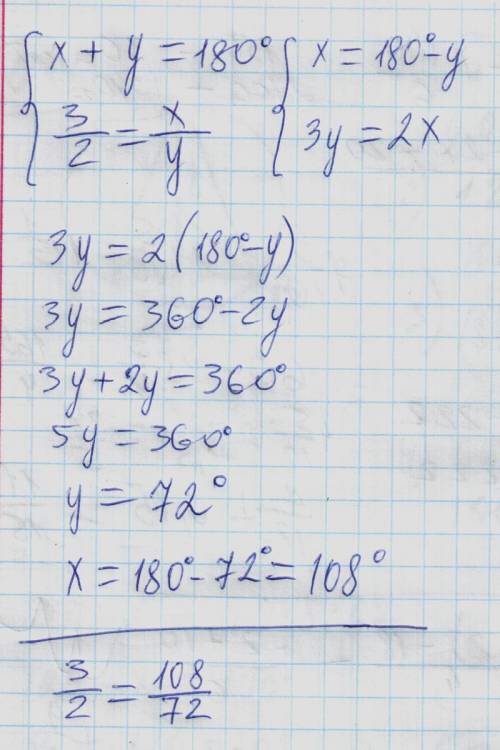 { x + y = 180° { x = 180° - y
3/2 = x/y 3y = 2x
3y = 2(180° - y)
3y = 360° - 2y
3y + 2y = 360°
5y = 360°
y = 72°
x = 180° - 72° = 108°
3/2 = 108/72